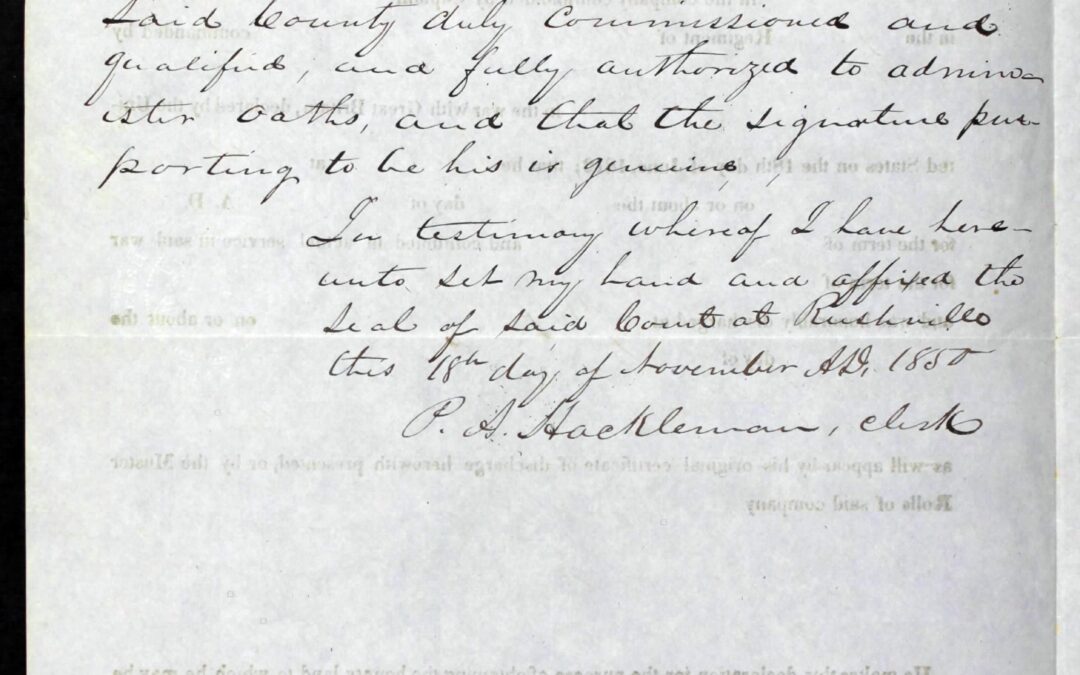 said County duly Commissioned and
qualified, and fully authorized to admin-
ister oaths, and that the signature pur-
porting to be his is genuine,
In testimony whereof I have here-
unto set my hand and affixed the
seal of said Court at Rushville
this 18th day of November AD, 1850
P. A. Hackleman, clerk
in the Regiment of commanded by
the war with Great Britain, declared by the Uni-
ted States on the 18th day of
on or about the day of A. D.
for the term of and continued in actual service in said war
on or about the
day of
as will appear by his original certificate of discharge herewith presented, or by the Muster
Rolls of said company
declaration for the purpose of obtaining the bounty land to which he may be